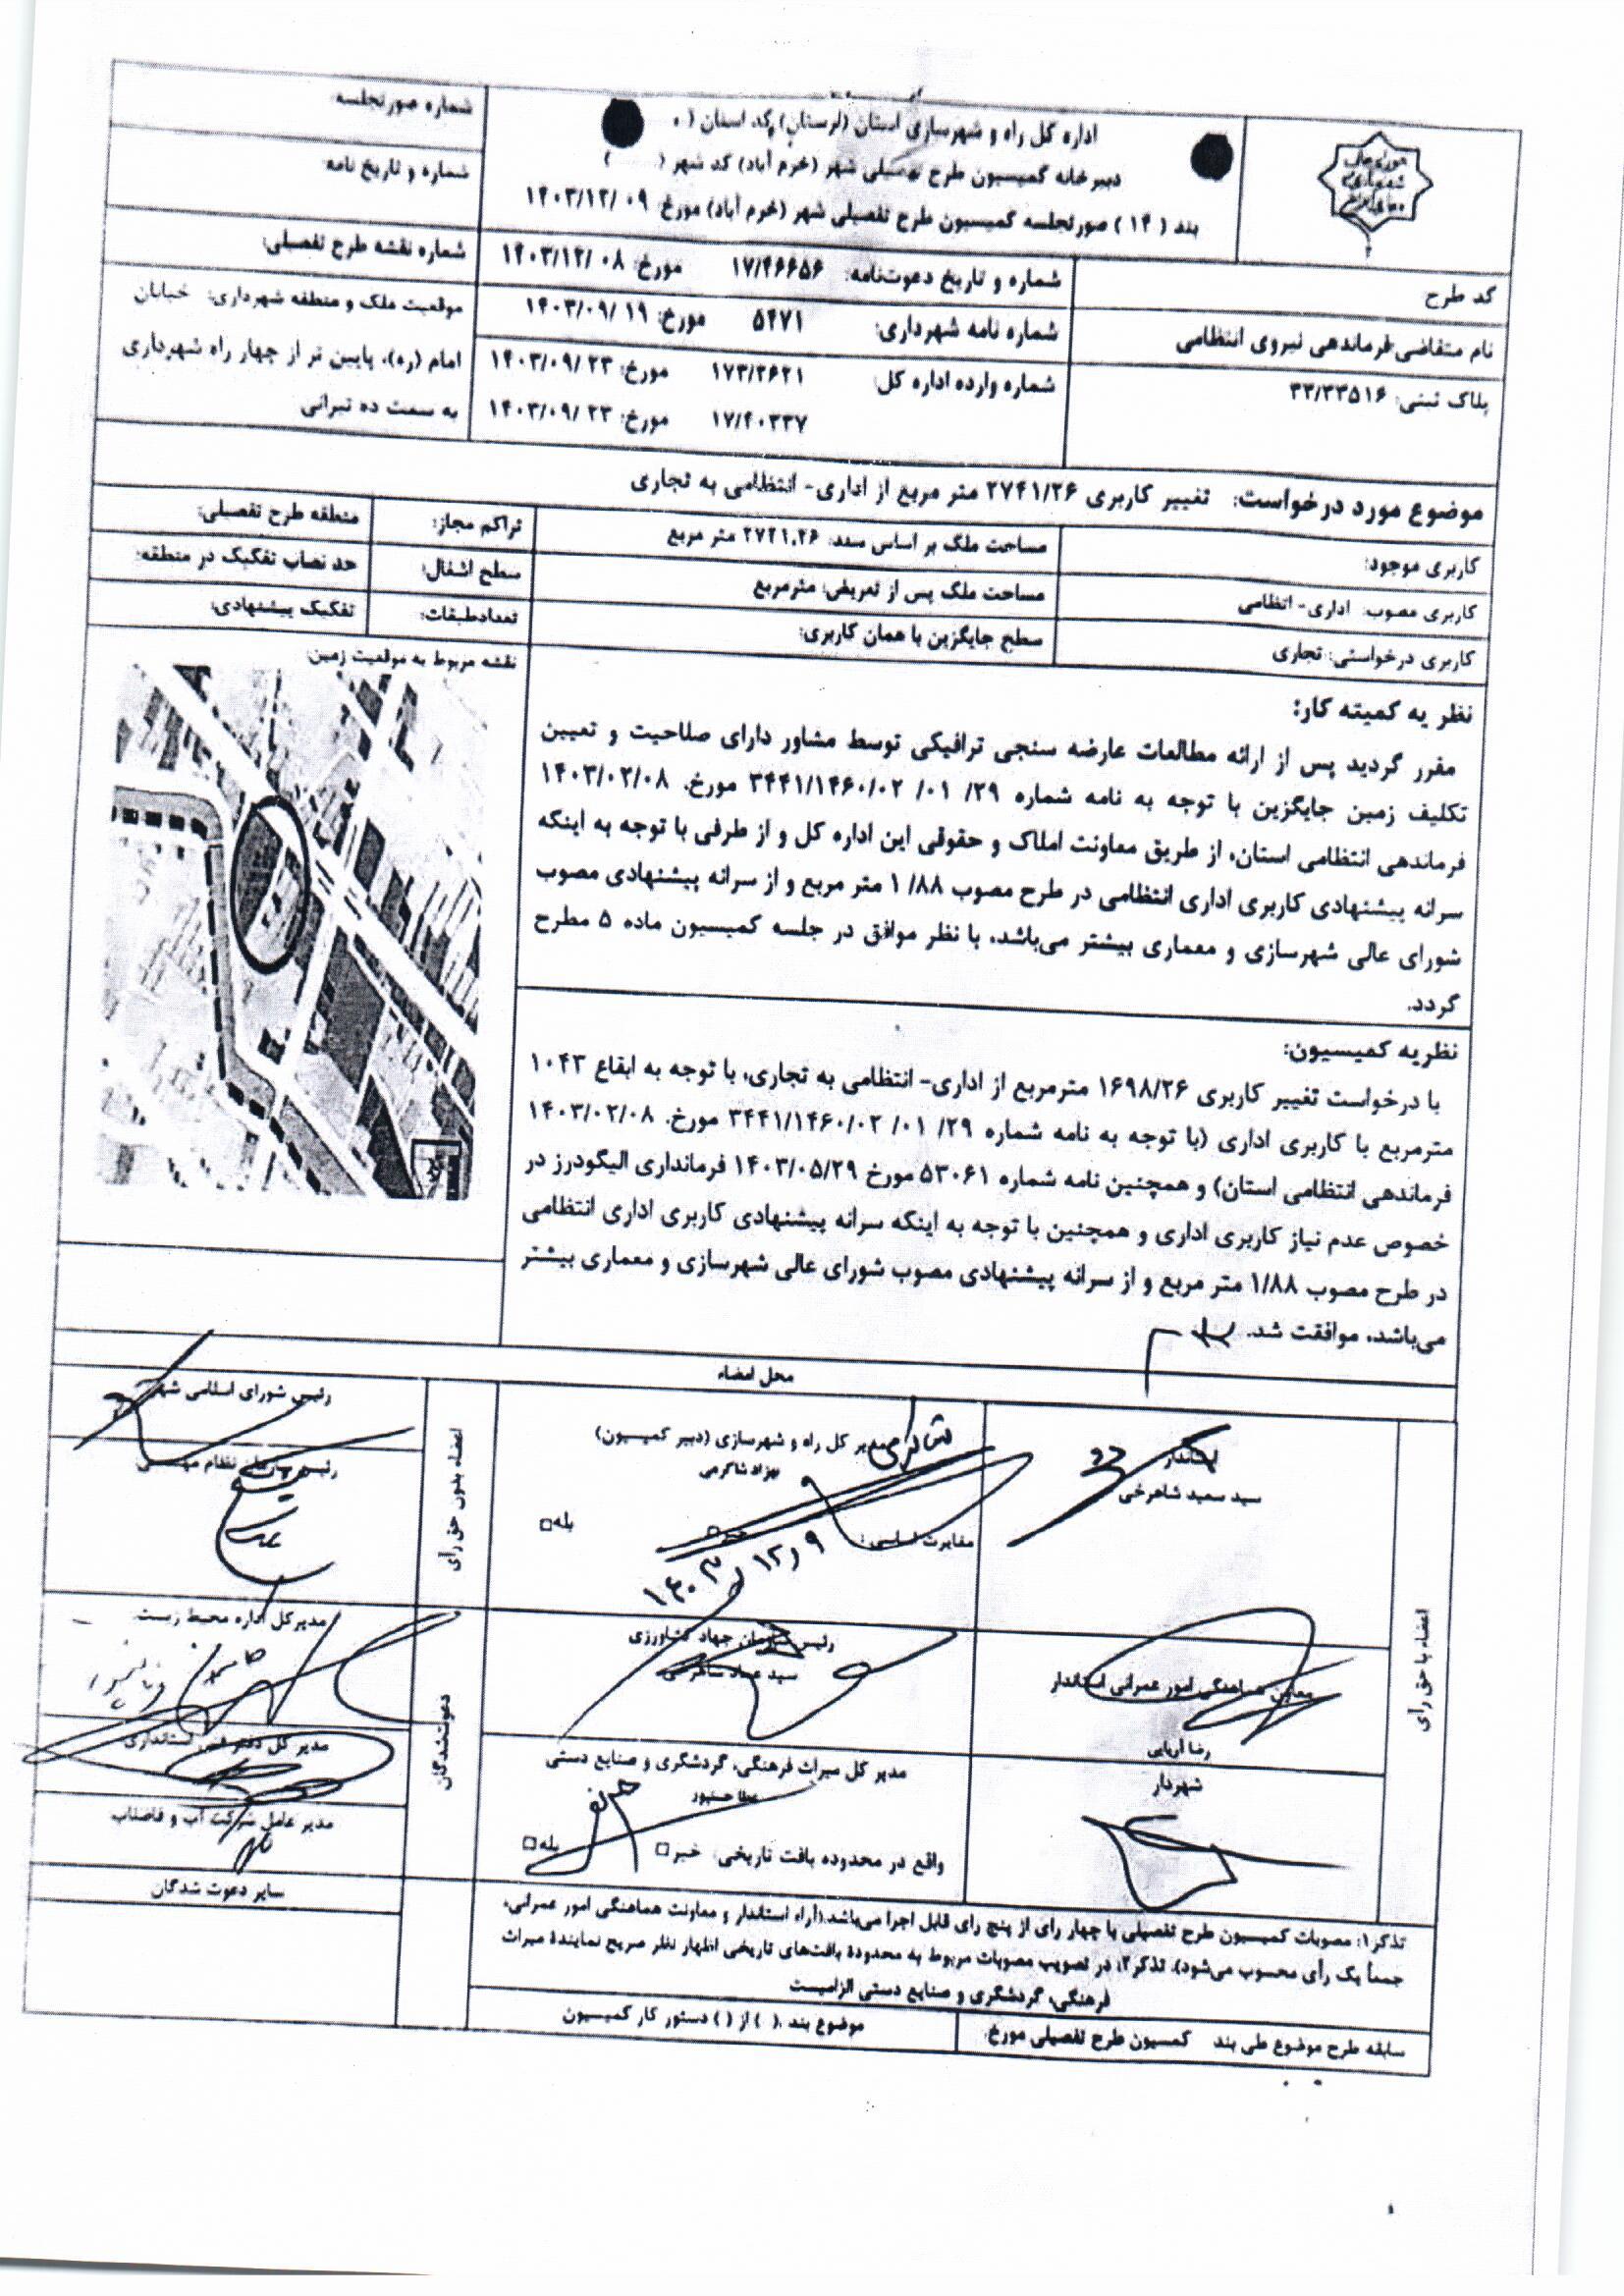 اداره کل راه و شهرسازی استان (لرستان) کد استان ( ۰
دبیرخانه کمیسیون طرح تفصیلی شهر (خرم آباد) کد شهر ( )
بند ( ۱۴ ) صورتجلسه کمیسیون طرح تفصیلی شهر (خرم آباد) مورخ: ۰۹ /۱۴۰۳/۱۲
شماره صورتجلسه:
شماره و تاریخ نامه:
کد طرح:
شماره و تاریخ دعوتنامه: ۱۷/۴۶۶۵۶ مورخ: ۰۸ /۱۴۰۳/۱۲
شماره نقشه طرح تفصیلی:
نام متقاضی: فرماندهی نیروی انتظامی
شماره نامه شهرداری: ۵۴۷۱ مورخ: ۱۹ /۱۴۰۳/۰۹
موقعیت ملک و منطقه شهرداری: خیابان
امام (ره)، پایین تر از چهار راه شهرداری
به سمت ده تیرانی
پلاک ثبتی: ۳۳/۳۳۵۱۶
شماره وارده اداره کل: ۱۷۳/۲۶۲۱ مورخ: ۲۳ /۱۴۰۳/۰۹
۱۷/۴۰۳۳۷ مورخ: ۲۳ /۱۴۰۳/۰۹
موضوع مورد درخواست: تغییر کاربری ۲۷۴۱/۲۶ متر مربع از اداری- انتظامی به تجاری
کاربری موجود:
مساحت ملک بر اساس سند: ۲۷۴۱.۲۶ متر مربع
تراکم مجاز:
منطقه طرح تفصیلی:
کاربری مصوب: اداری- انتظامی
مساحت ملک پس از تعریض: مترمربع
سطح اشغال:
حد نصاب تفکیک در منطقه:
کاربری درخواستی: تجاری
سطح جایگزین با همان کاربری:
تعدادطبقات:
تفکیک پیشنهادی:
نقشه مربوط به موقعیت زمین:
نظریه کمیته کار:
مقرر گردید پس از ارائه مطالعات عارضه سنجی ترافیکی توسط مشاور دارای صلاحیت و تعیین
تکلیف زمین جایگزین با توجه به نامه شماره ۲۹/ ۰۱/ ۳۴۴۱/۱۴۶۰/۰۲ مورخ. ۱۴۰۳/۰۲/۰۸
فرماندهی انتظامی استان، از طریق معاونت املاک و حقوقی این اداره کل و از طرفی با توجه به اینکه
سرانه پیشنهادی کاربری اداری انتظامی در طرح مصوب ۱/۸۸ متر مربع و از سرانه پیشنهادی مصوب
شورای عالی شهرسازی و معماری بیشتر می‌باشد، با نظر موافق در جلسه کمیسیون ماده ۵ مطرح
گردد.
نظریه کمیسیون:
با درخواست تغییر کاربری ۱۶۹۸/۲۶ مترمربع از اداری- انتظامی به تجاری، با توجه به ابقاع ۱۰۴۳
مترمربع با کاربری اداری (با توجه به نامه شماره ۲۹/ ۰۱/ ۳۴۴۱/۱۴۶۰/۰۲ مورخ. ۱۴۰۳/۰۲/۰۸
فرماندهی انتظامی استان) و همچنین نامه شماره ۵۳۰۶۱ مورخ ۱۴۰۳/۰۵/۲۹ فرمانداری الیگودرز در
خصوص عدم نیاز کاربری اداری و همچنین با توجه به اینکه سرانه پیشنهادی کاربری اداری انتظامی
در طرح مصوب ۱/۸۸ متر مربع و از سرانه پیشنهادی مصوب شورای عالی شهرسازی و معماری بیشتر
می‌باشد، موافقت شد.
محل امضاء
اعضاء با حق رأی
استاندار
سید سعید شاهرخی
مدیر کل راه و شهرسازی (دبیر کمیسیون)
بهزاد شاکرمی
مغایرت اساسی: خیر بله
۱۴۰۳/۱۲/۹
اعضاء بدون حق رأی
رئیس شورای اسلامی شهر
رئیس سازمان نظام مهندسی
معاون هماهنگی امور عمرانی استاندار
رضا آریایی
رئیس سازمان جهاد کشاورزی
سید عماد شاهرخی
دعوت‌شدگان
مدیرکل اداره محیط زیست
مدیر کل دفتر فنی استانداری
شهردار
مدیر کل میراث فرهنگی، گردشگری و صنایع دستی
عطا حسنپور
واقع در محدوده بافت تاریخی: خیر بله
مدیر عامل شرکت آب و فاضلاب
سایر دعوت شدگان
تذکر۱: مصوبات کمیسیون طرح تفصیلی با چهار رای از پنج رای قابل اجرا می‌باشد (آراء استاندار و معاونت هماهنگی امور عمرانی،
جمعاً یک رأی محسوب می‌شود). تذکر۲: در تصویب مصوبات مربوط به محدودهٔ بافت‌های تاریخی اظهار نظر صریح نمایندهٔ میراث
فرهنگی، گردشگری و صنایع دستی الزامیست
سابقه طرح موضوع طی بند کمسیون طرح تفصیلی مورخ:
موضوع بند ( ) از ( ) دستور کار کمیسیون